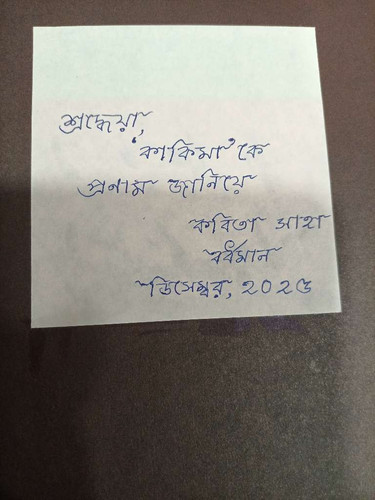 শ্রদ্ধেয়া,
'কাকিমা'কে
প্রণাম জানিয়ে
কবিতা সাহা
বর্ধমান
ডিসেম্বর, ২০২৩